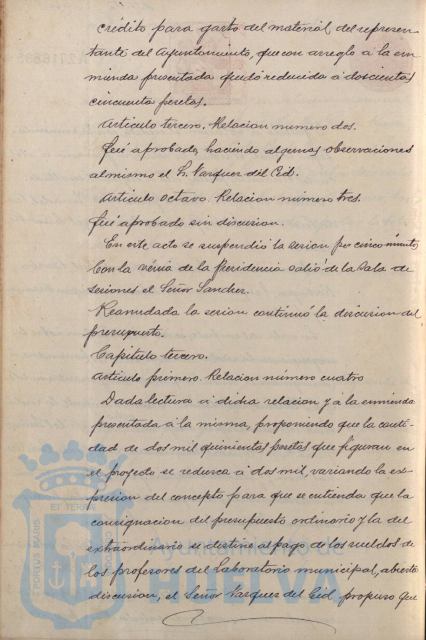 crédito para gasto del material, del represen-
tante del Ayuntamiento, que con arreglo a la en-
mienda presentada quedó reducida a doscientas
cincuenta pesetas.
Articulo tercero. Relacion número dos.
fué aprobado, haciendo algunas observaciones
al mismo el Sr. Vazquez del Cid.
Articulo octavo. Relacion número tres.
fué aprobado sin discusion.
En este acto se suspendió la sesion por cinco minutos
Con la venia de la Presidencia salió de la Sala de
sesiones el Señor Sanchez.
Reanudada la sesion continuó la discusion del
presupuesto.
Capitulo tercero.
Articulo primero. Relacion número cuatro
Dada lectura a dicha relacion y a la enmienda
presentada a la misma, proponiendo que la canti-
dad de dos mil quinientas pesetas que figuran en
el proyecto se reduzca a dos mil, variando la ex-
presion del concepto para que se entienda que la
consignacion del presupuesto ordinario y la del
extraordinario se destine al pago de los sueldos de
los profesores del Laboratorio municipal, abierta
discusion, el Señor Vazquez del Cid propuso que
ET TERRÆ
PORTUS MARIS
Ayuntamiento de
HUELVA